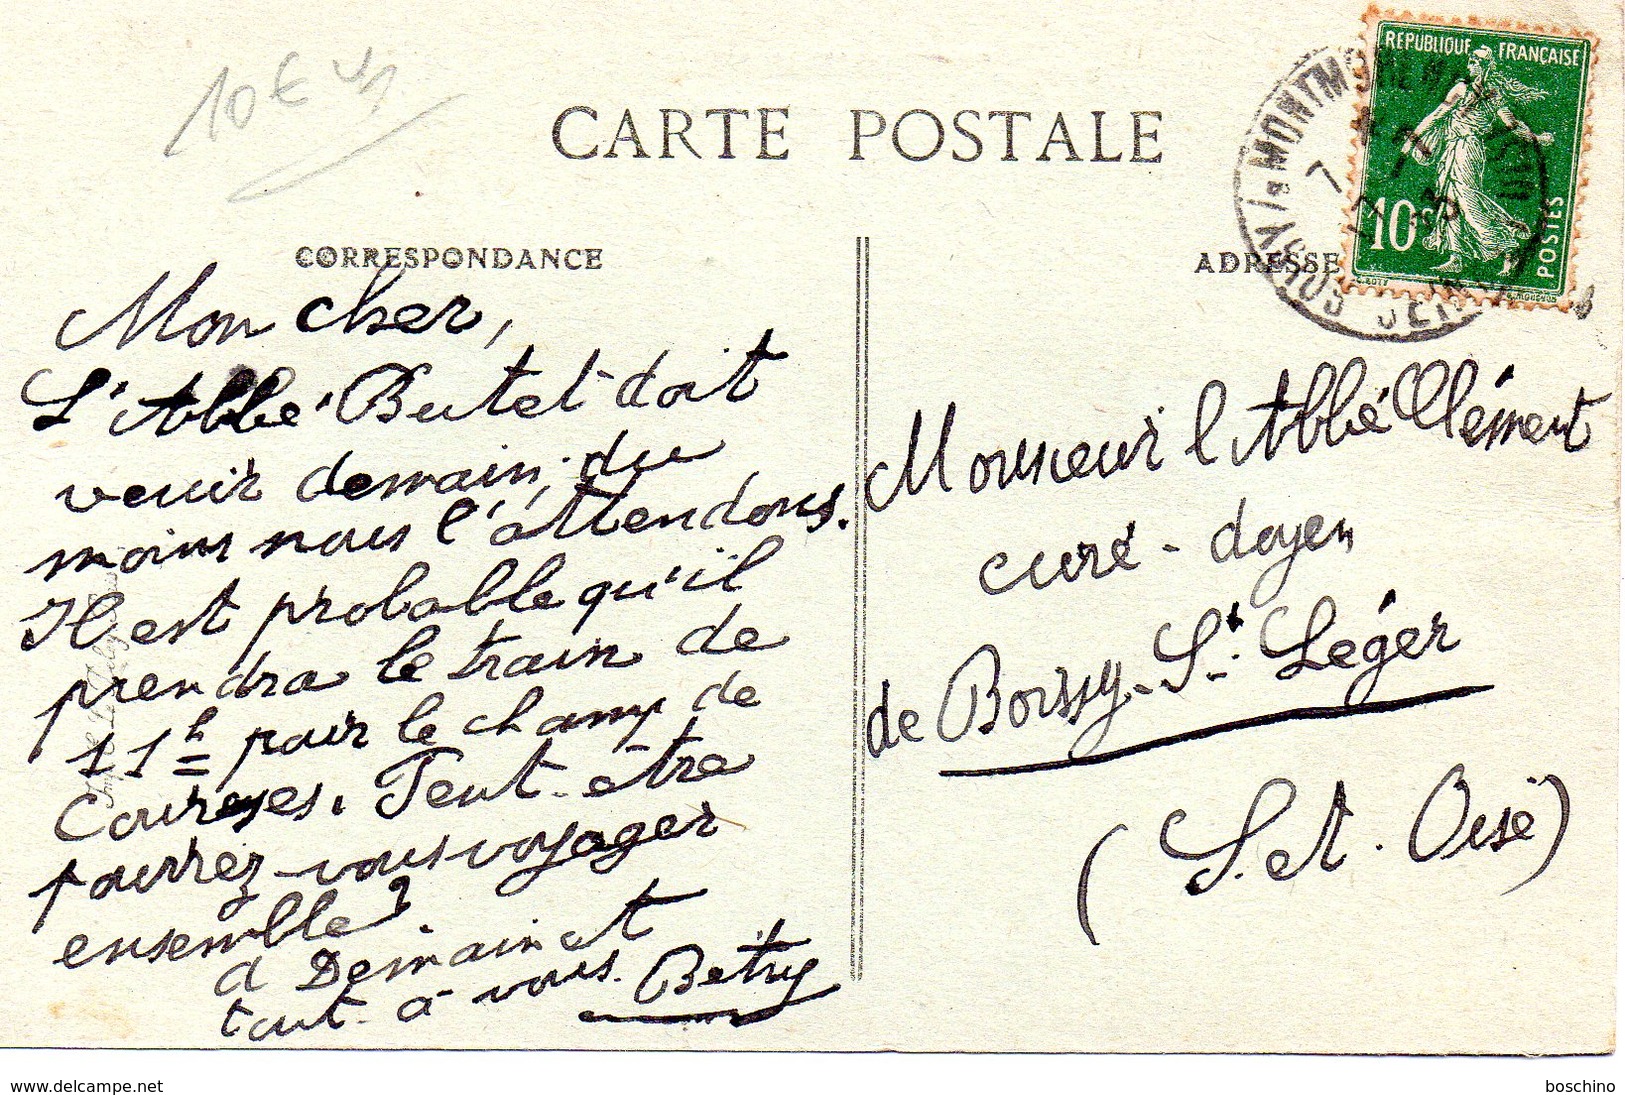 10 €
CARTE POSTALE
CORRESPONDANCE
ADRESSE
REPUBLIQUE FRANÇAISE
10c
POSTES
SOISY / S MONTMORENCY
7
SEINE
Mon cher,
L'Abbé Butel doit
venir demain; du
moins nous l'attendons.
Il est probable qu'il
prendra le train de
11h pour le champ de
Courses. Peut-être
pourrez-vous voyager
ensemble?
à Demain et
tout à vous. Betry
Monsieur l'Abbé Clément
curé-doyen
de Boissy-St-Léger
(S. et. Oise)
www.delcampe.net
boschino